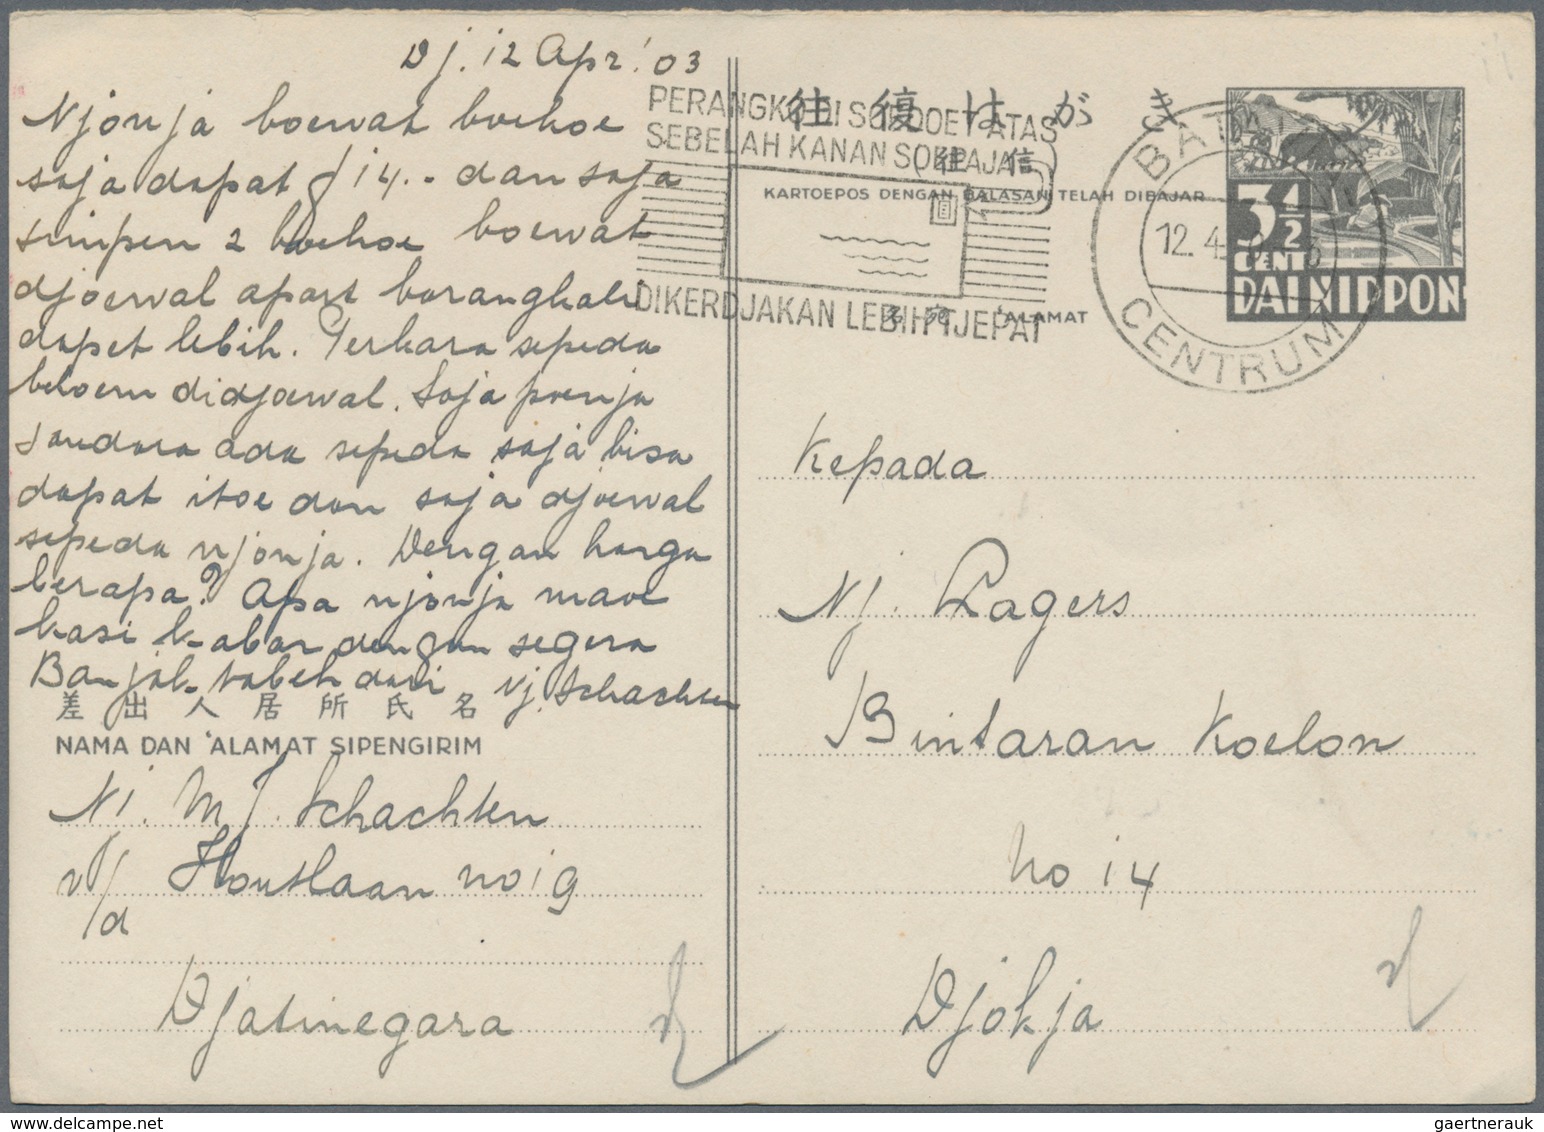 Dj. 12 Apr. '03
Njonja boewat boekoe
saja dapat f 14.- dan saja
simpen 2 boekoe boewat
djoewal apart barangkali
dapet lebih. Perkara sepeda
beloem didjoewal. Saja poenja
saudara ada sepeda saja bisa
dapat itoe dan saja djoewal
sepeda njonja. Dengan harga
berapa? Apa njonja maoe
kasi kabar dengan segera
Banjak tabeh dari Nj. Schachten
差出人居所氏名
NAMA DAN 'ALAMAT SIPENGIRIM
Nj. M J. Schachten
v/d Houtlaan no 19
Djatinegara
往復はがき
(往信
KARTOEPOS DENGAN BALASAN TELAH DIBAJAR
PERANGKO DI SOEDOET ATAS
SEBELAH KANAN SOEPAJA
DIKERDJAKAN LEBIH TJEPAT
BATAVIA
12.4
CENTRUM
3½
CENT
DAI NIPPON
'ALAMAT
Kepada
Nj. Lagers
Bintaran Koelon
No 14
Djokja
gaertnerauk @ www.delcampe.net